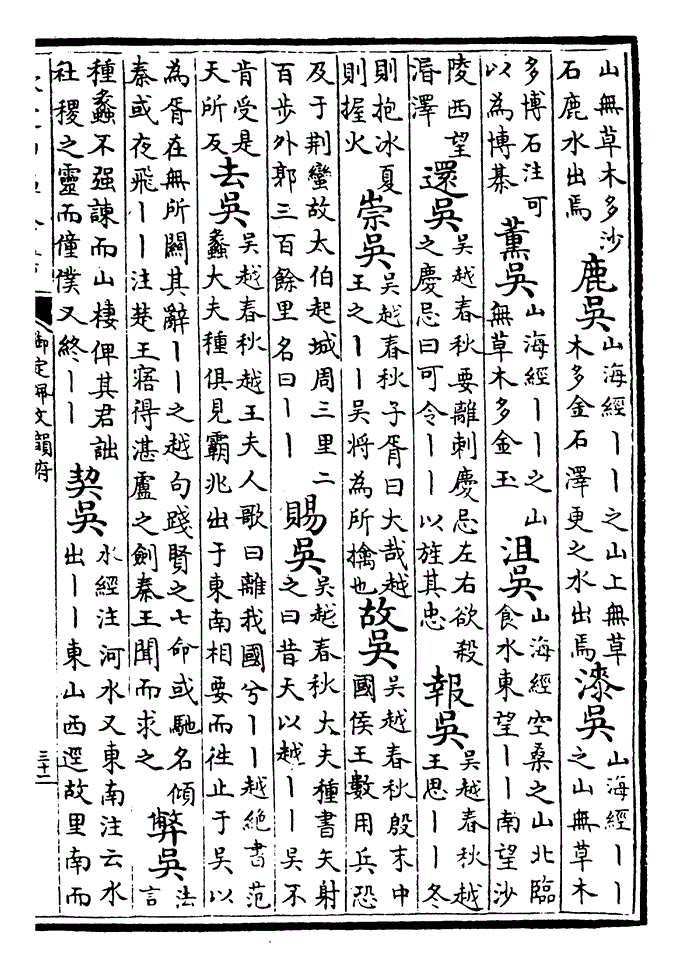 山無草木多沙
石鹿水出焉
鹿吳
山海經丨丨之山上無草
木多金石澤更之水出焉
漆吳
山海經丨丨
之山無草木
多博石注可
以為博棊
薰吳
山海經丨丨之山
無草木多金玉
沮吳
山海經空桑之山北臨
食水東望丨丨南望沙
陵西望
湣澤
還吳
吳越春秋要離刺慶忌左右欲殺
之慶忌曰可令丨丨以旌其忠
報吳
吳越春秋越
王思丨丨冬
則抱冰夏
則握火
崇吳
吳越春秋子胥曰大哉越
王之丨丨吳將為所擒也
故吳
吳越春秋殷末中
國侯王數用兵恐
及于荆蠻故太伯起城周三里二
百步外郭三百餘里名曰丨丨
賜吳
吳越春秋大夫種書矢射
之曰昔天以越丨丨吳不
肯受是
天所反
去吳
吳越春秋越王夫人歌曰離我國兮丨丨越絕書范
蠡大夫種俱見霸兆出于東南相要而徃止于吳以
為胥在無所關其辭丨丨之越句踐賢之七命或馳名傾
秦或夜飛丨丨注楚王寤得湛盧之劍秦王聞而求之
弊吳
法
言
種蠡不强諫而山棲俾其君詘
社稷之靈而僮僕又終丨丨
契吳
水經注河水又東南注云水
出丨丨東山西逕故里南而
御定佩文韻府
三十二